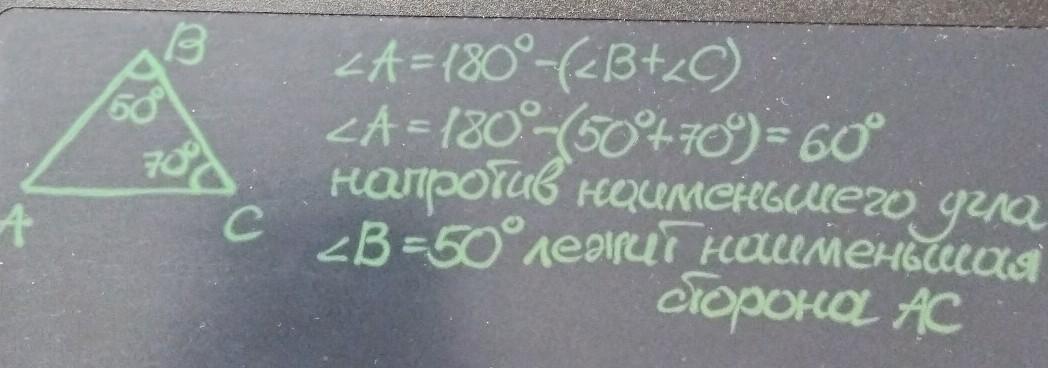 B
50°
70°
A
C
∠A=180°-(∠B+∠C)
∠A=180°-(50°+70°)=60°
напротив наименьшего угла
∠B=50° лежит наименьшая
сторона AC